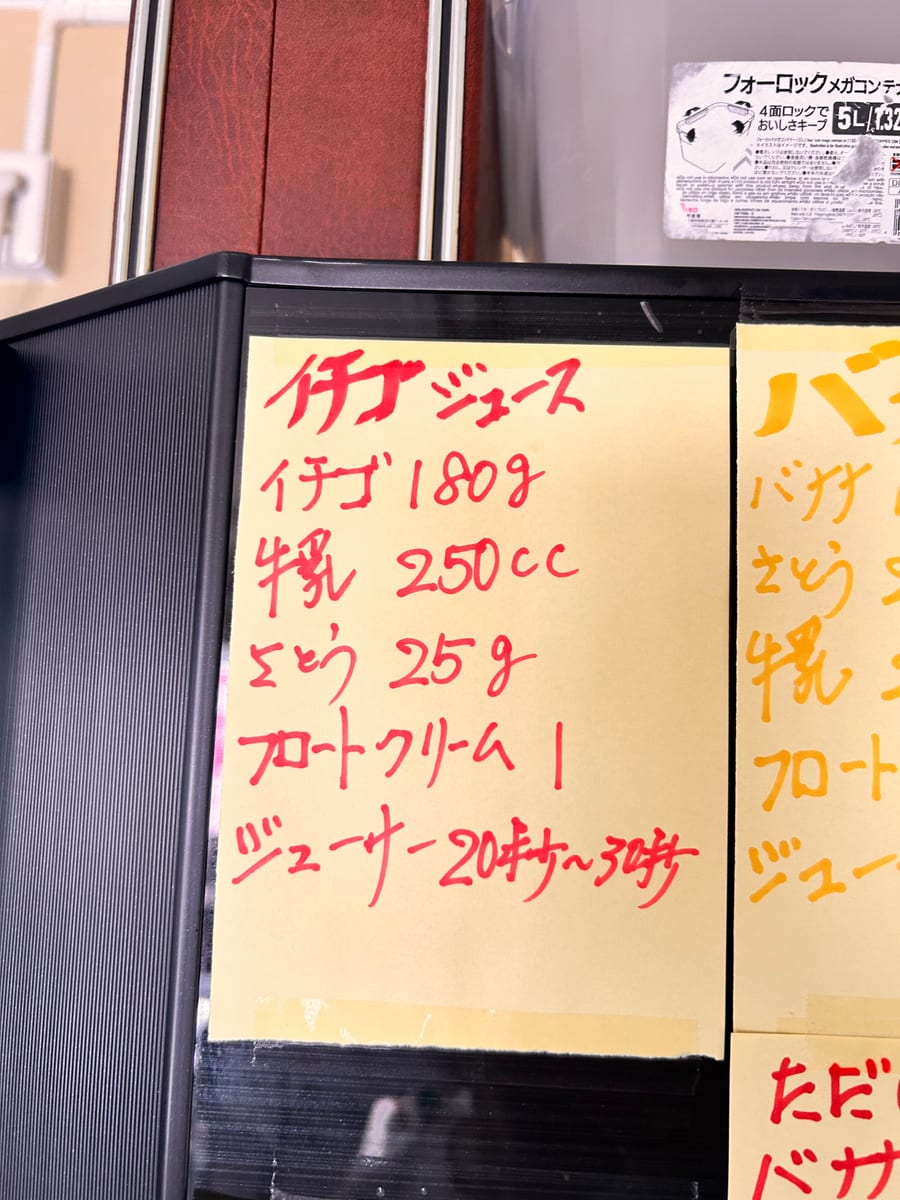 フォーロックメガコンテナ
4面ロックで
おいしさキープ
5L/1.32
イチゴジュース
イチゴ 180g
牛乳 250cc
さとう 25g
フロートクリーム 1
ジューサー 20秒～30秒
バナ
バナナ 1
さとう 2
牛乳 2
フロート
ジューサー
ただし
バナナ